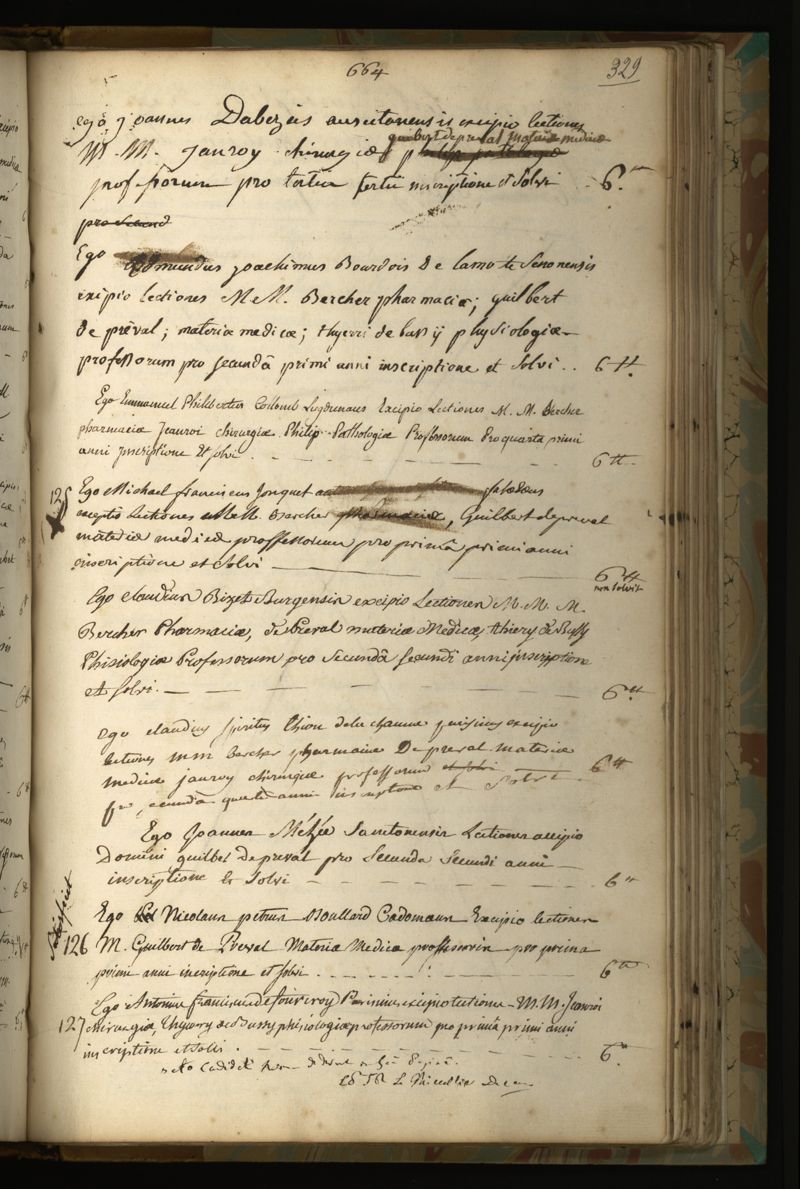 664
329
ego joannes Dabezies auscitanensis excipio lectiones
guilbert de preval materiae medicae
M. M. Janroy chirurgiae
professorum pro tertia tertii inscriptione et solvi 6.tt
pro second
Ego Edmundus joachimus Bourdois De lamotte Senonensis
exipio lectiones M. M. Bercher pharmaciae; guilbert
De préval; materiae medicae; thyerri de bussÿ physiologiae
professorum pro secundâ primi anni inscriptione et solvi.. 6 tt.
Ego Emmanuel Philibertus Collomb Lugdunaus Excipio Lectiones M. M. Bercher
pharmaciae Jeanroi chirurgiae Philip Pathologiae Professorum Pro quarta primi
anni Inscriptione Et solvi. 6 tt.
125 Ego Michael franciscus Jonquet
excepio Lectiones M. M. Bercher pharmaciae, Guilbert depreval
materiae medicae professorum pro primâ primi anni
inscriptione et solvi 6 tt
non solvit
Ego claudius Bizet Burgensis excipio Lectiones M. M. M.
Bercher Pharmaciae, de Preval materiae Medicae, thiery de Bussy
Phisiologiae Professorum pro Secundâ secundi anni inscriptione
et solvi. 6tt.
ego claudius spiritus Thion dela chaume parisinus excipio
lectiones mm bercher pharmaciae Depreval materiae
medicae janroy chirurgiae professorum et solvi 6tt
pro secundâ quarti anni inscriptione et solvi
Ego Joannes Mézée Santonensis Lectiones accipio
Domini guilbet depreval pro Secunda Secundi anni
inscriptione Et Solvi 6 tt
Ego Nicolaus petrus Boullard Cadomaeus Excipio lectiones
126 M. Guilbert de Preval Materiae Medicae professoris pro prima
primi anni incriptione et solvi 6tt
Ego Antonius franciscus de fourcroy Parisinus excipio lectiones M. M. Jeanroi
127 chirurgiae, Thyerry de Bussy physiologiae professorum pro primâ primi anni
inscriptione et solvi. 6tt
L. Le Thieullier Decan